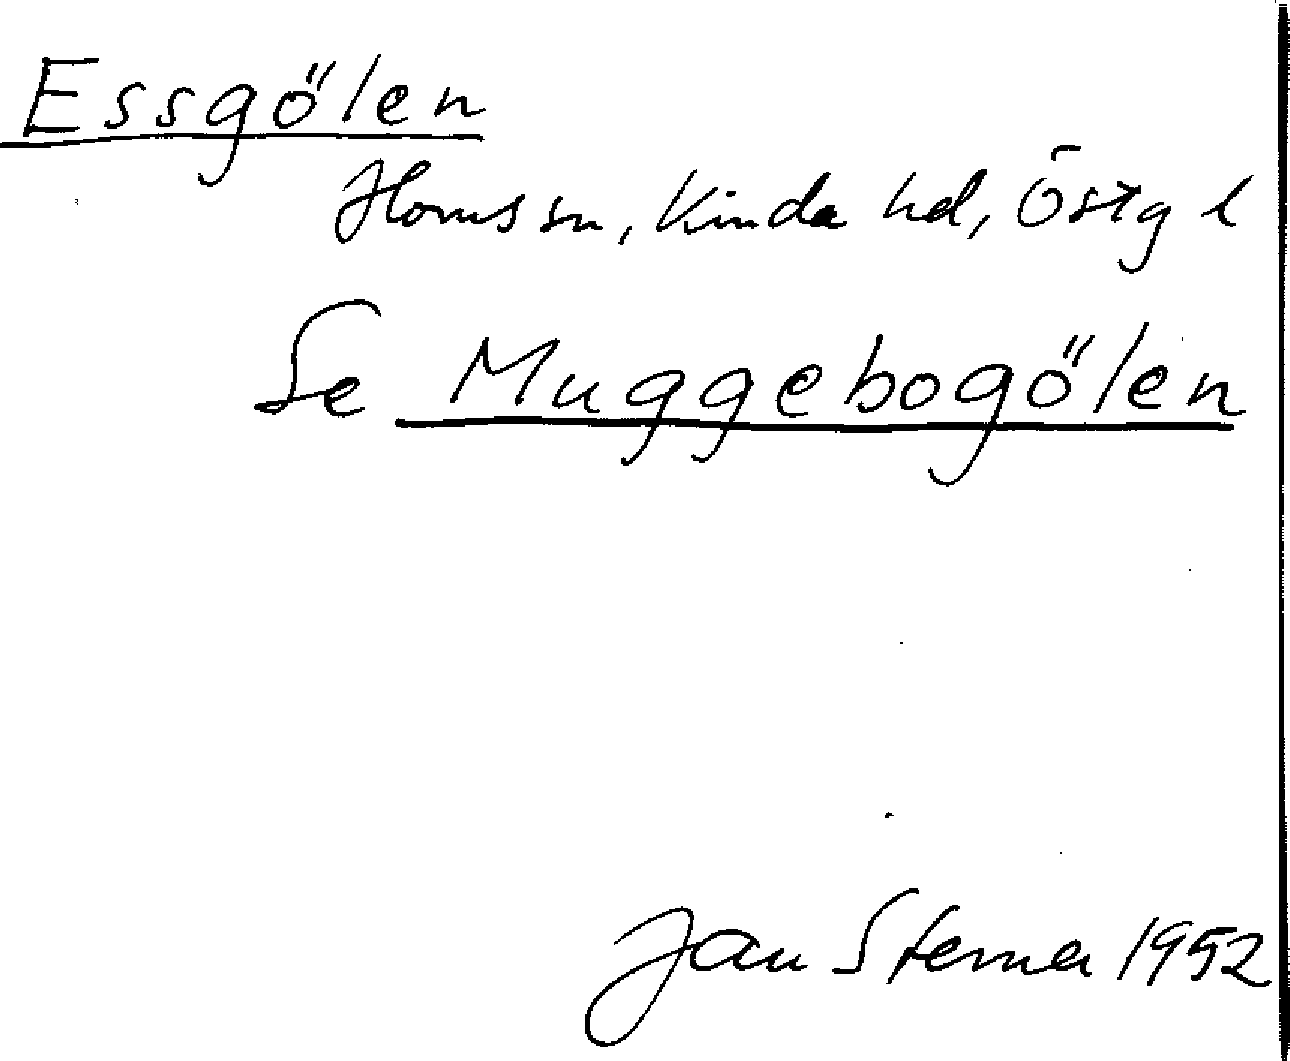 Essgölen
Horns sn, Kinda hd, Östg l
Se Muggebogölen
Jan Sterner 1952